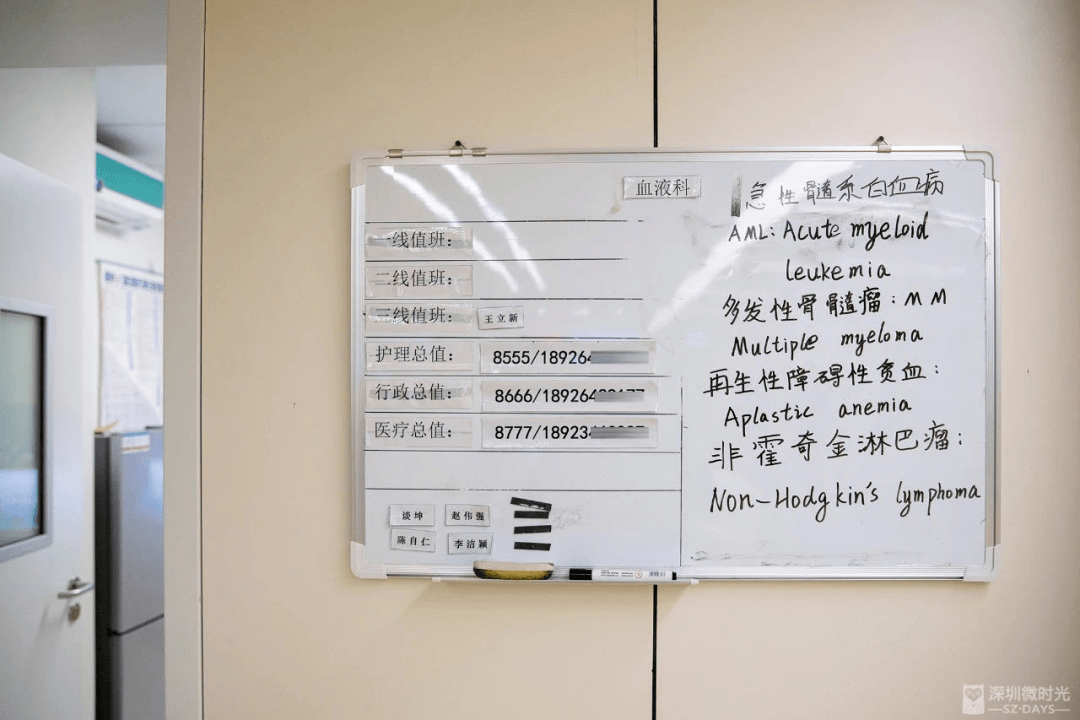 血液科
一线值班：
二线值班：
三线值班： 王立新
护理总值： 8555/189264
行政总值： 8666/189264
医疗总值： 8777/18923
谈坤 赵伟强
陈自仁 李洁颖
急性髓系白血病
AML: Acute myeloid
leukemia
多发性骨髓瘤：MM
Multiple myeloma
再生性障碍性贫血：
Aplastic anemia
非霍奇金淋巴瘤：
Non-Hodgkin's lymphoma
深圳微时光
—SZ·DAYS—